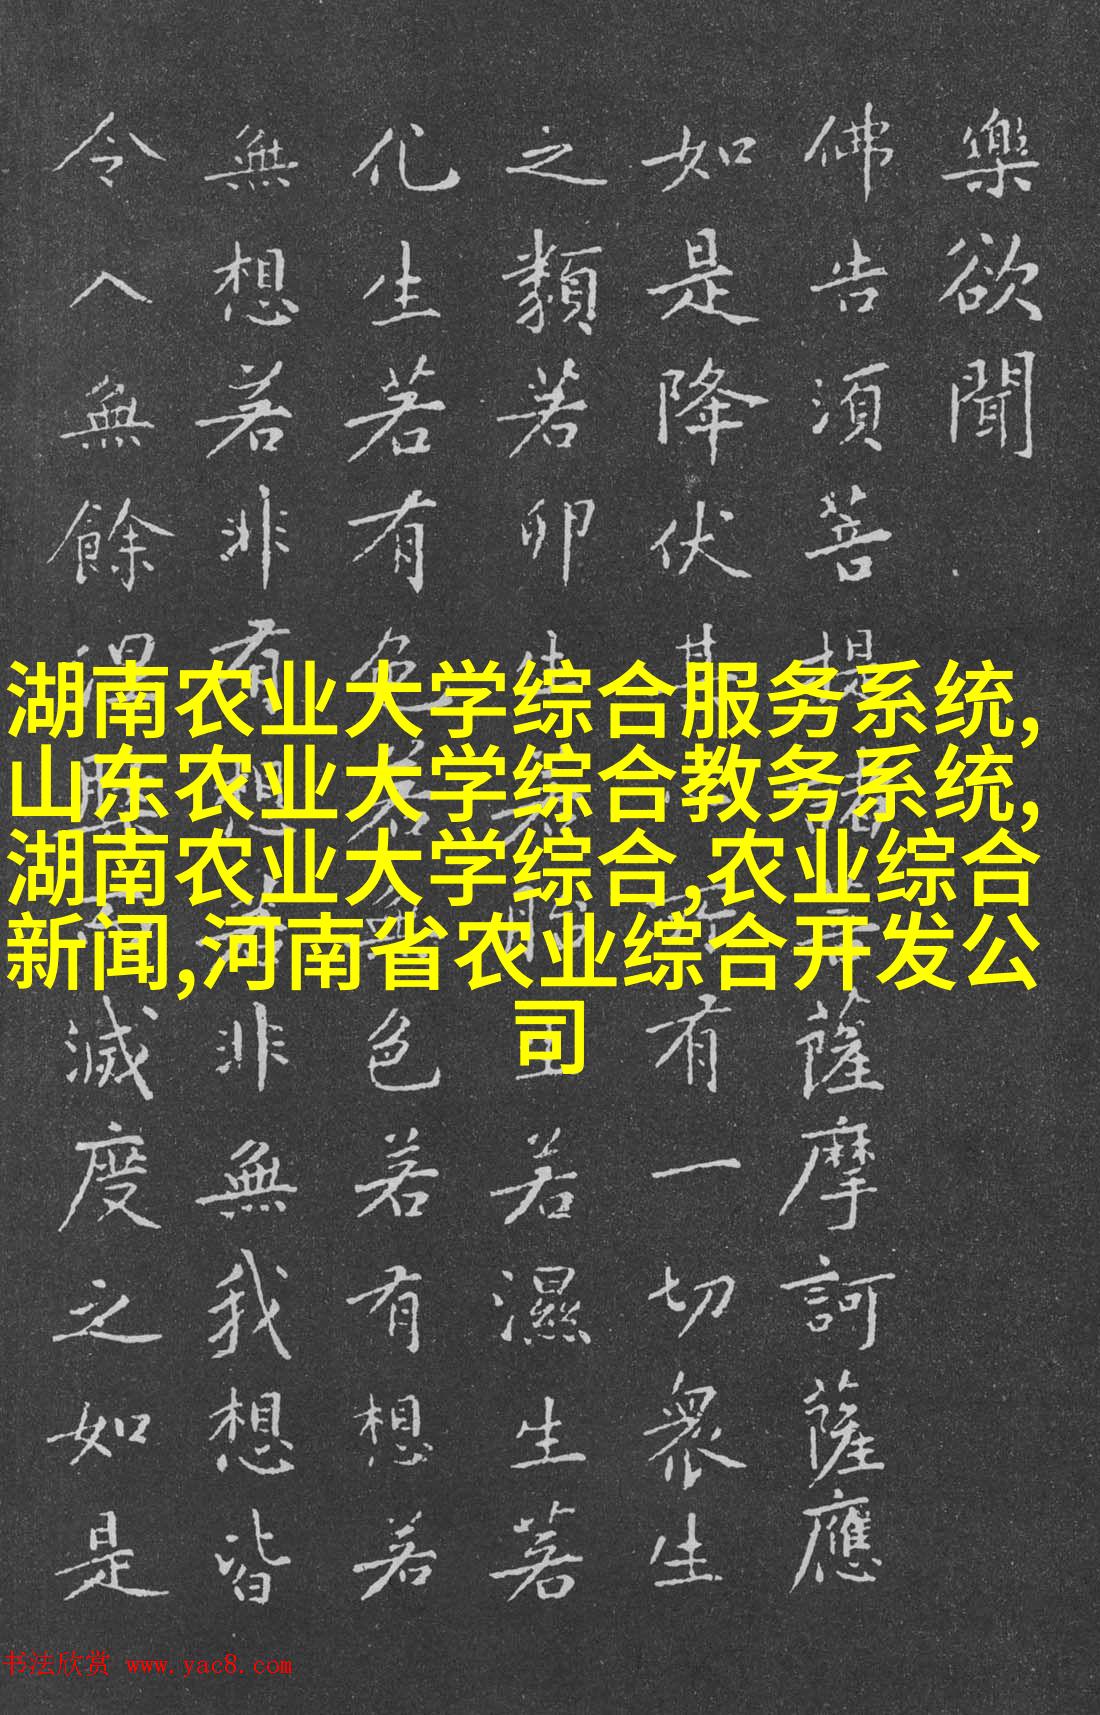 樂欲聞
佛告須菩提諸菩薩摩訶薩應
如是降伏其心所有一切衆生
之類若卵生若胎生若濕生若
化生若有色若無色若有想若
無想若非有想若非無我想皆
令入無餘涅槃而滅度之如是
湖南农业大学综合服务系统,
山东农业大学综合教务系统,
湖南农业大学综合,农业综合
新闻,河南省农业综合开发公
司
书法欣赏 www.yac8.com